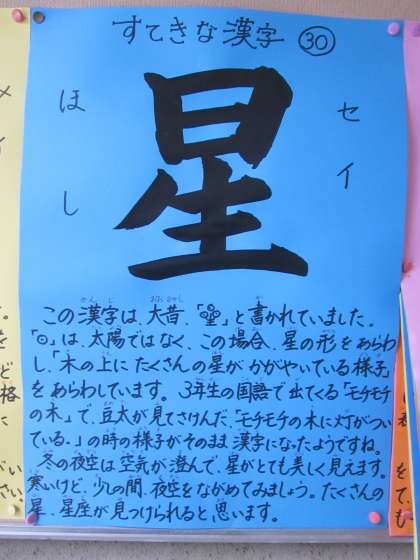 すてきな漢字 ㉚
星
セイ
ほし
この漢字は、大昔、「」と書かれていました。
「」は、太陽ではなく、この場合、星の形をあらわ
し「木の上にたくさんの星がかがやいている様子」
をあらわしています。3年生の国語で出てくる「モチモチ
の木」で、豆太が見てさけんだ、「モチモチの木に灯がつい
ている。」の時の様子がそのまま漢字になったようですね。
冬の夜空は空気が澄んで、星がとても美しく見えます。
寒いけど、少しの間、夜空をながめてみましょう。たくさんの
星、星座が見つけられると思います。